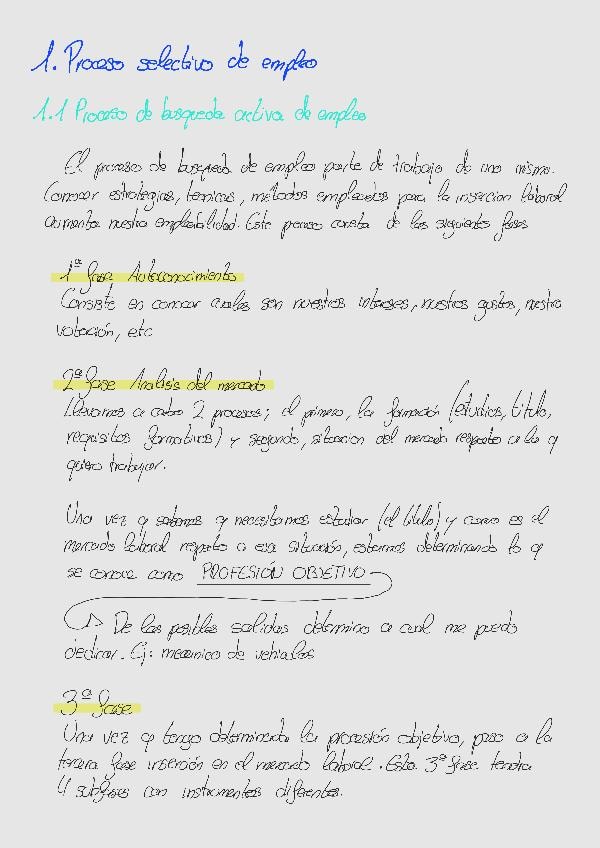 1. Proceso selectivo de empleo
1.1 Proceso de busqueda activa de empleo
El proceso de busqueda de empleo parte de trabajo de uno mismo.
Conocer estrategias, tecnicas, métodos empleados para la insercion laboral
aumenta nuestra empleabilidad. Este proceso consta de las siguientes fases
1ª fase Autoconocimiento
Consiste en conocer cuales son nuestros intereses, nuestros gustos, nuestra
votación, etc
2ª fase Analisis del mercado
Llevamos a cabo 2 procesos; el primero, la formación (estudios, titulo,
requisitos formativos) y segundo, situacion del mercado respecto a lo q
quiero trabajar.
Una vez q sabemos q necesitamos estudiar (el titulo) y como es el
mercado laboral respeto a esa situación, estamos determinando lo q
se conoce como PROFESIÓN OBJETIVO
De las posibles salidas determino a cual me puedo
dedicar. Ej: mecanico de vehiculos
3ª fase
Una vez q tengo determinada la profesión objetivo, paso a la
tercera fase inserción en el mercado laboral. Esta 3ª fase tendra
4 subfases con instrumentos diferentes.